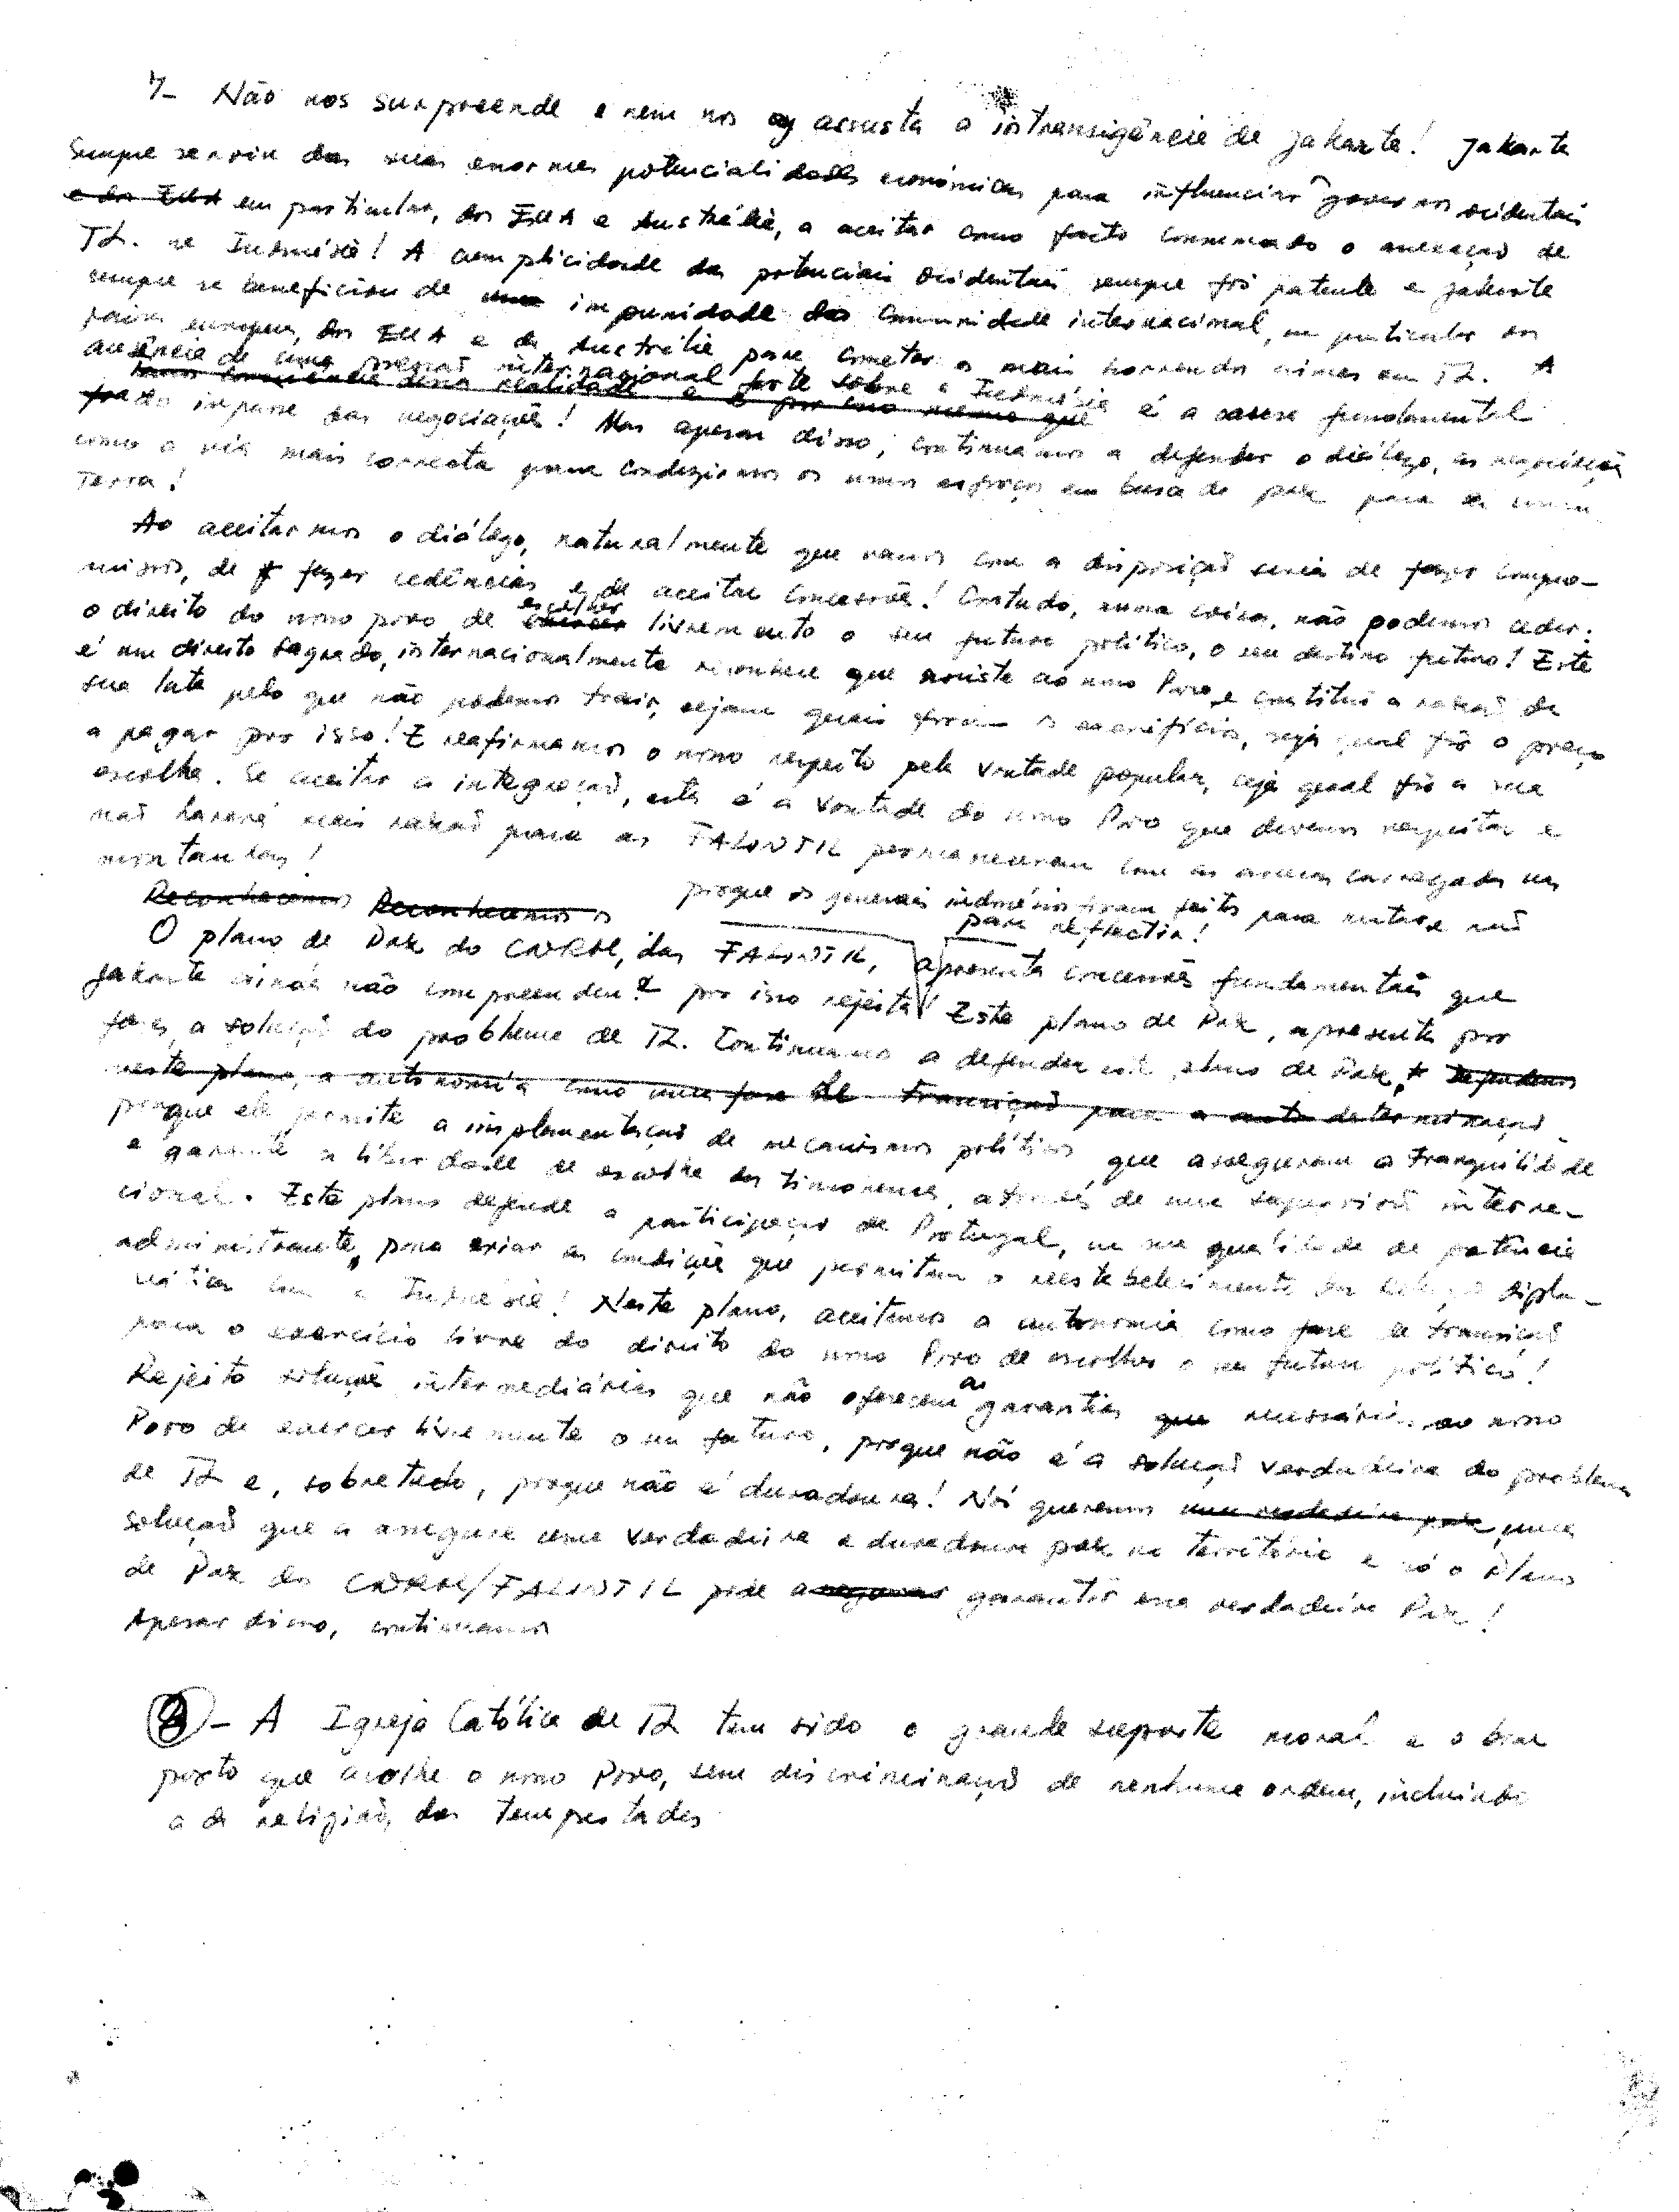 7- Não nos surpreende e nem nos assusta a intransigência de Jakarta! Jakarta
sempre serviu das suas enormes potencialidades económicas para influenciar governos ocidentais
e dos EUA em particular, dos EUA e Austrália, a aceitar como facto consumado a anexação de
TL. na Indonésia! A cumplicidade das potenciais ocidentais sempre foi patente e Jakarta
sempre se beneficiou de uma impunidade da comunidade internacional, em particular dos
países europeus, dos EUA e da Austrália para cometer os mais horrendos crimes em TL. A
ausência de uma pressão internacional forte sobre a Indonésia é a causa fundamental
temos consciência dessa realidade e é por isso mesmo que
do impasse das negociações! Mas apesar disso, continuamos a defender o diálogo, as negociações
como a via mais correcta para conduzirmos os nossos esforços em busca da paz para a nossa
Terra!
Ao aceitarmos o diálogo, naturalmente que vamos com a disposição séria de fazer compro-
missos, de fazer cedências e de aceitar concessões! Contudo, numa coisa, não podemos ceder:
o direito do nosso povo de escolher livremente o seu futuro político, o seu destino futuro! Este
é um direito sagrado, internacionalmente reconhece que assiste ao nosso Povo e constitui a razão da
sua luta pelo que não podemos trair, sejam quais forem os sacrifícios, seja qual for o preço
a pagar por isso! E reafirmamos o nosso respeito pela vontade popular, seja qual for a sua
escolha. Se aceitar a integração, esta é a vontade do nosso Povo que devemos respeitar e
não haverá mais razão para as FALINTIL permanecerem com as armas carregadas nas
montanhas!
Reconhecemos Reconhecemos os
porque os generais indonésios foram feitos para matar e não
para reflectir!
O plano de Paz do CNRM, das FALINTIL, apresenta concessões fundamentais que
Jakarta ainda não compreendeu e por isso rejeita! Este plano de Paz, apresenta por
fases, a solução do problema de TL. Continuamos a defender este plano de Paz, Defendemos
neste plano, a autonomia como uma fase de transição para a auto determinação
porque ele permite a implementação de mecanismos políticos que asseguram a tranquilidade
e garante a liberdade de escolha dos timorenses, através de uma supervisão interna-
cional. Este plano defende a participação de Portugal, na sua qualidade de potência
administrante, para criar as condições que permitam o reestabelecimento das relações diplo-
máticas com a Indonésia! Neste plano, aceitamos a autonomia como fase de transição
para o exercício livre do direito do nosso Povo de escolher o seu futuro político!
Rejeito soluções intermediárias que não oferecem as garantias que necessárias ao nosso
Povo de exercer livremente o seu futuro, porque não é a solução verdadeira do problema
de TL e, sobretudo, porque não é duradoura! Nós queremos uma verdadeira paz, uma
solução que a assegure uma verdadeira e duradoura paz no território e só o Plano
de Paz do CNRM/FALINTIL pode assegurar garantir essa verdadeira Paz!
Apesar disso, continuamos
8- A Igreja Católica de TL tem sido o grande suporte moral e o bom
porto que acolhe o nosso Povo, sem discriminação de nenhuma ordem, incluindo
a da religião, das tempestades